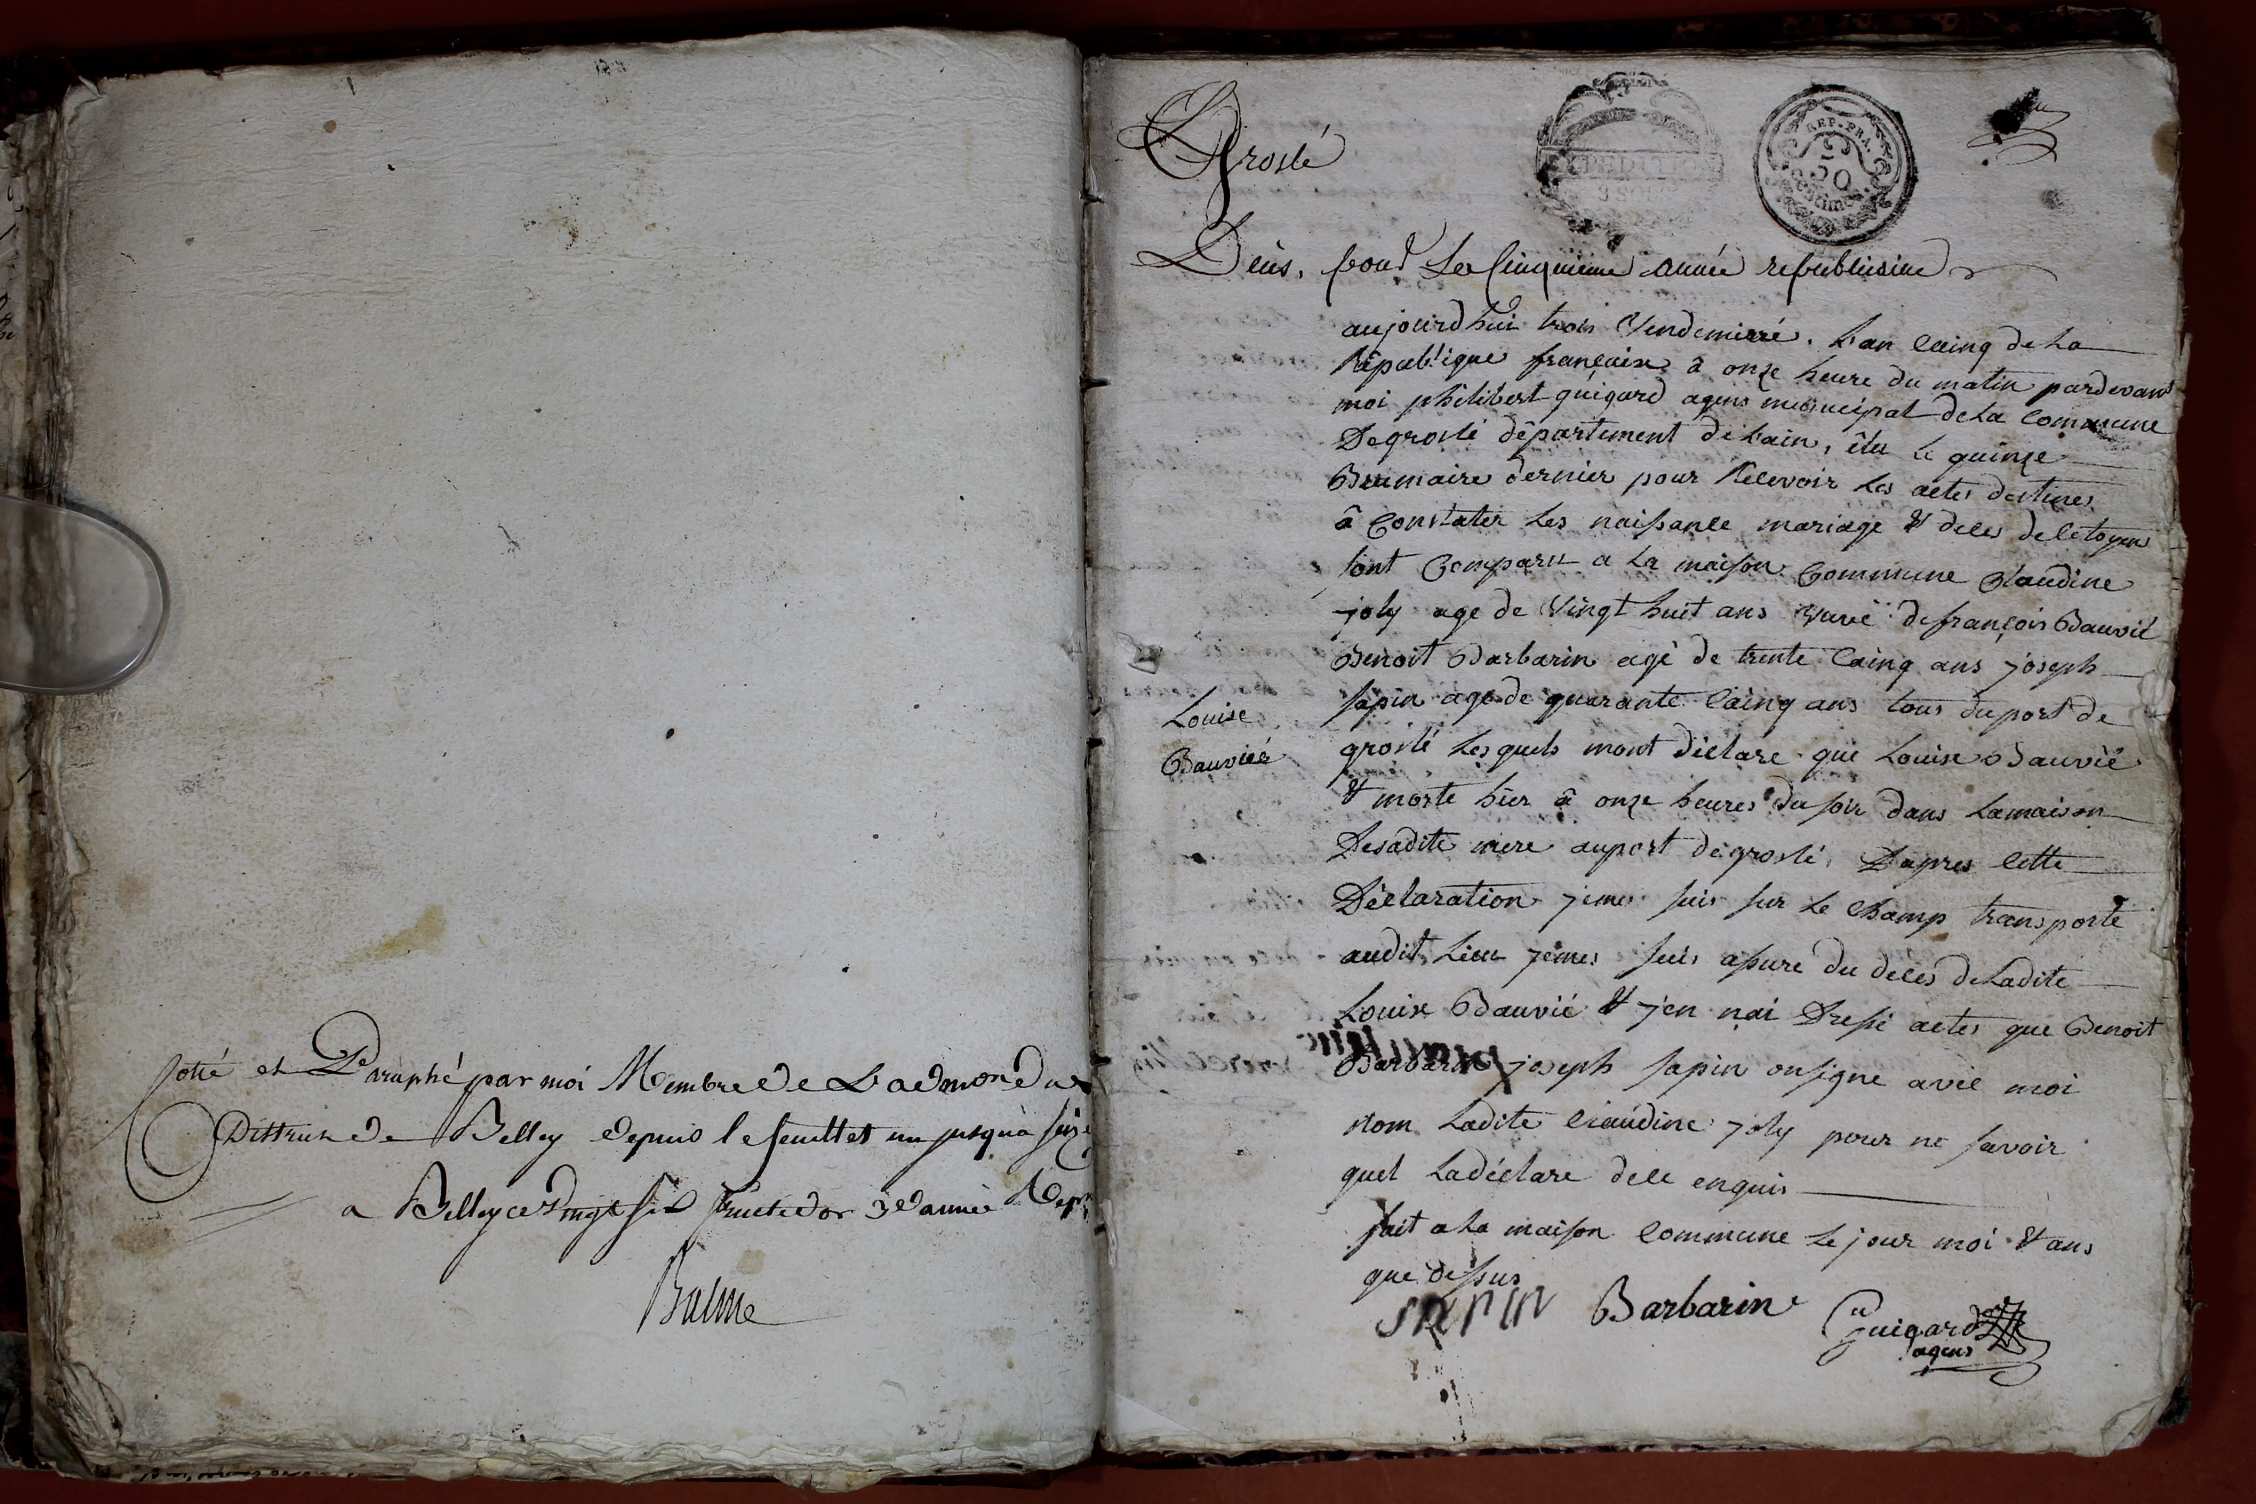 Cotté et Paraphé par moi Membre de L'admon du
District de Belley depuis le feuillet un jusqu'à seize
a Belley ce vingt six fructidor 3e année Rep
Balme
Groslé
EXPEDITION
REP. FRA.
50
centimes
Décès, pour La Cinquieme année republicaine
aujourdhui trois Vendemierre. L'an Cainq de La
République françaixe à onze heure du matin pardevant
moi philibert guigard agens municipal de La Commune
De groslé département de Lain, élu le quinze
Brumaire dernier pour Recevoir Les actes destines
â Constater Les naissance mariage & deces de Citoyens
sont Comparu a La maison Commune Claudine
joly age de Vingt huit ans vuve de françois Bauvié
Benoit Barbarin agé de trente Cainq ans joseph
sapin age de quarante Cainq ans tous du port de
groslé Les quels mont déclare que Louise Bauvié
Louise
Bauvié
& morte hier â onze heures du soir dans Lamaison
Desadite mere auport de groslé, Dapres Cette
Déclaration jemes suis sur Le Champ transporté
audit Lieu jemes suis assure du deces de Ladite
Louise Bauvié & jen nai Dressé actes que Benoit
Barbarin joseph sapin onsigne avec moi
nom Ladite Claudine joly pour ne savoir
quel Ladéclare dece enquis
fait a La maison Commune Le jour moi & ans
que dessus
SAPIN Barbarin Guigard
agens